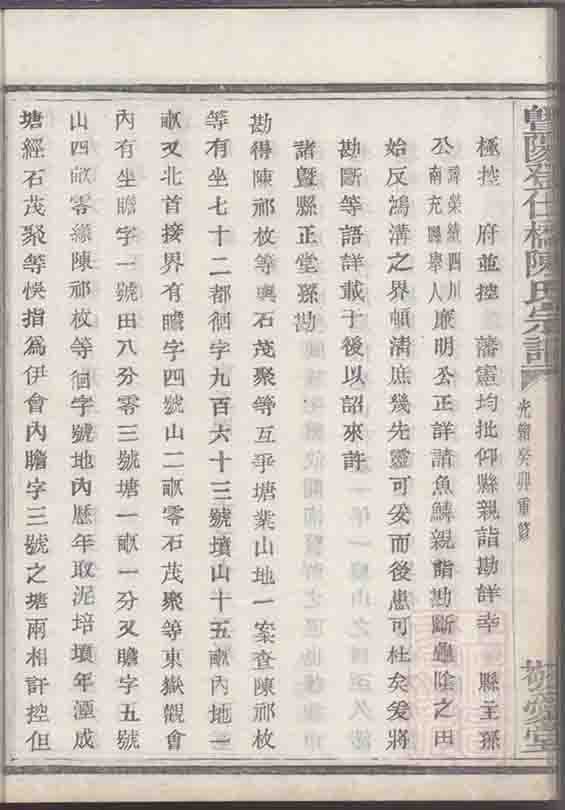 暨陽登仕橋陳氏宗譜
光緒癸卯重修
敬愛堂
極控　府並控　藩憲均批仰縣親詣勘詳幸　縣主孫
公諱榮統四川南充縣舉人廉明公正詳請魚鱗親詣勘斷墨陰之田
始反鴻溝之界頓清庶幾先靈可妥而後患可杜矣爰將
勘斷等語詳載于後以詔來許
諸暨縣正堂孫勘
勘得陳祁枚等與石茂聚等互爭塘業山地一案查陳祁枚
等有坐七十二都徊字九百六十三號墳山十五畝內地一
畝又北首接界有瞻字四號山二畝零石茂聚等東嶽觀會
內有坐瞻字一號田八分零三號塘一畝一分又瞻字五號
山四畝零緣陳祁枚等徊字號地內歷年取泥培墳年湮成
塘經石茂聚等悞指爲伊會內瞻字三號之塘兩相許控但